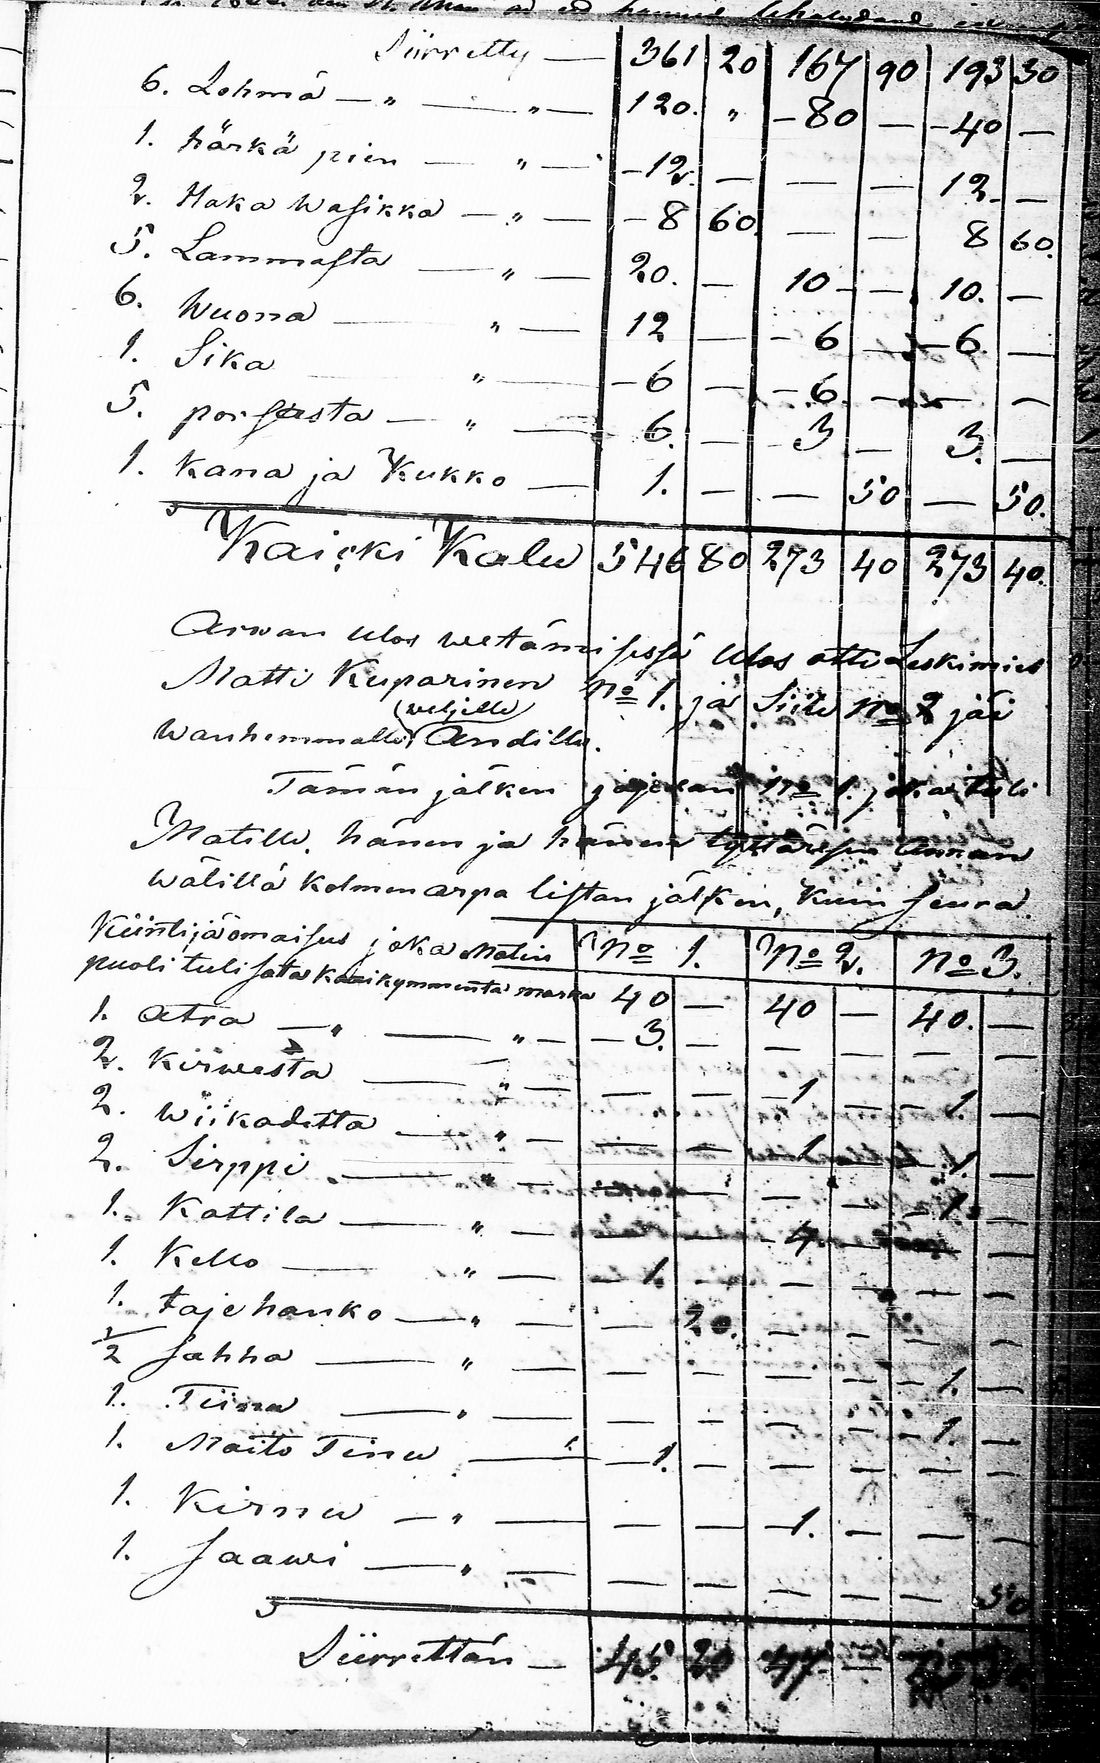 Siirretty — 361 20 167 90 193 30
6. Lehmä — „ — „ — 120. „ — 80 — — 40 —
1. härkä pien — „ — 12. — — — 12. —
2. Haka Wasikka — „ — 8 60. — — 8 60.
5. Lammasta — „ — 20. — 10 — — 10. —
6. Wuona — „ — 12 — 6 — — 6. —
1. Sika „ — 6 — — 6. — — —
5. porsasta — „ — 6. — 3 — 3. —
1. Kana ja Kukko — 1. — — 50 — 50.
Kaicki Kalu 546 80 273 40 273 40.
Arwan Ulos wetämisessä Ulos otti Leskimies
Matti Kuparinen No 1. ja Siite No 2 jäi
(weljelle)
wanhemmalle Andille.
Tämän jälken jajetan No 1. joka tuli
Matille. hänen ja hänen tyttärisen Annan
wälillä Kolmen arpa listan jälken, Kuin seura.
Kiintijäömaisus joka Matin No 1. No 2. No 3.
puoli tuli sata Kaxikymmentä marka 40 — 40 — 40. —
1. Atra — „ — „ — 3. — — — — —
2. Kirwesta — „ — — — 1 — — 1. —
2. Wiikadetta — „ — — — 1 — — 1. —
2. Sirppi — „ — — — — — 1. —
1. Kattila — „ — — 4 — — —
1. Kello — „ — 1. — — — — —
1. tajehanko — „ — 20. — — — —
1/2 Sahha — „ — — — — — 1. —
1. Tiinu — „ — — — — — 1. —
1. Maito Tinu — 1. — — — — —
1. Kirnu — „ — — — 1. — — —
1. Saawi — „ — — — — — — 50
Siirrettän — 45. 20 47 —